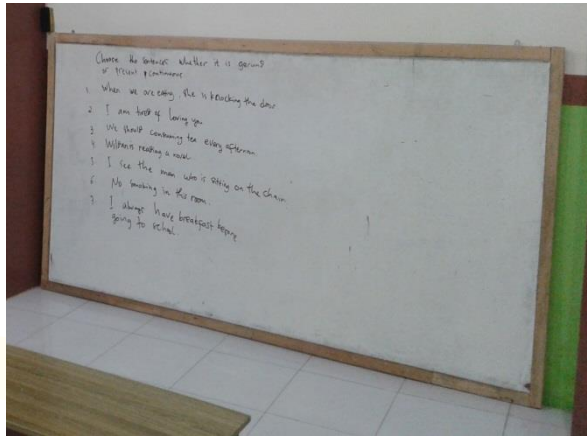 Choose the sentences whether it is gerund
or present continuous
1. When we are eating, she is knocking the door
2. I am tired of loving you
3. We should continuing tea every afternoon
4. is reading a novel
5. I see the man who is sitting on the chair
6. No smoking in this room.
7. I always have breakfast before
going to school.